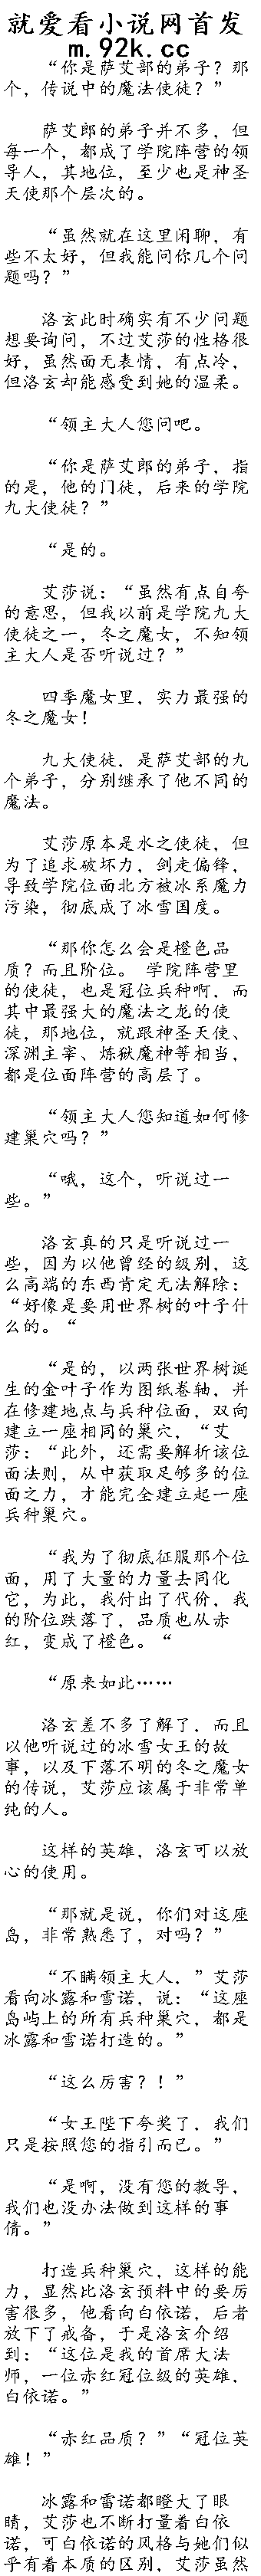 就爱看小说网首发
m.92k.cc
“你是萨艾部的弟子？那
个，传说中的魔法使徒？”
萨艾郎的弟子并不多，但
每一个，都成了学院阵营的领
导人，其地位，至少也是神圣
天使那个层次的。
“虽然就在这里闲聊，有
些不太好，但我能问你几个问
题吗？”
洛玄此时确实有不少问题
想要询问，不过艾莎的性格很
好，虽然面无表情，有点冷，
但洛玄却能感受到她的温柔。
“领主大人您问吧。
“你是萨艾郎的弟子，指
的是，他的门徒，后来的学院
九大使徒？”
“是的。
艾莎说：“虽然有点自夸
的意思，但我以前是学院九大
使徒之一，冬之魔女，不知领
主大人是否听说过？”
四季魔女里，实力最强的
冬之魔女！
九大使徒．是萨艾部的九
个弟子，分别继承了他不同的
魔法。
艾莎原本是水之使徒，但
为了追求破坏力，剑走偏锋，
导致学院位面北方被冰系魔力
污染，彻底成了冰雪国度。
“那你怎么会是橙色品
质？而且阶位。 学院阵营里
的使徒，也是冠位兵种啊．而
其中最强大的魔法之龙的使
徒，那地位，就跟神圣天使、
深渊主宰、炼狱魔神等相当，
都是位面阵营的高层了。
“领主大人您知道如何修
建巢穴吗？”
“哦，这个，听说过一
些。”
洛玄真的只是听说过一
些，因为以他曾经的级别，这
么高端的东西肯定无法解除：
“好像是要用世界树的叶子什
么的。“
“是的，以两张世界树诞
生的金叶子作为图纸卷轴，并
在修建地点与兵种位面，双向
建立一座相同的巢穴，“艾
莎：“此外，还需要解析该位
面法则，从中获取足够多的位
面之力，才能完全建立起一座
兵种巢穴。
“我为了彻底征服那个位
面，用了大量的力量去同化
它，为此，我付出了代价，我
的阶位跌落了，品质也从赤
红，变成了橙色。“
“原来如此……
洛玄差不多了解了．而且
以他听说过的冰雪女王的故
事，以及下落不明的冬之魔女
的传说，艾莎应该属于非常单
纯的人。
这样的英雄，洛玄可以放
心的使用。
“那就是说，你们对这座
岛，非常熟悉了，对吗？”
“不瞒领主大人．”艾莎
看向冰露和雪诺，说：“这座
岛屿上的所有兵种巢穴，都是
冰露和雪诺打造的。”
“这么厉害？！”
“女王陛下夸奖了．我们
只是按照您的指引而已。”
“是啊，没有您的教导，
我们也没办法做到这样的事
倩。”
打造兵种巢穴，这样的能
力，显然比洛玄预料中的要厉
害很多，他看向白依诺，后者
放下了戒备，于是洛玄介绍
到：“这位是我的首席大法
师，一位赤红冠位级的英雄．
白依诺。”
“赤红品质？”“冠位英
雄！”
冰露和雷诺都瞪大了眼
睛，艾莎也不断打量着白依
诺，可白依诺的风格与她们似
乎有着本质的区别，艾莎虽然